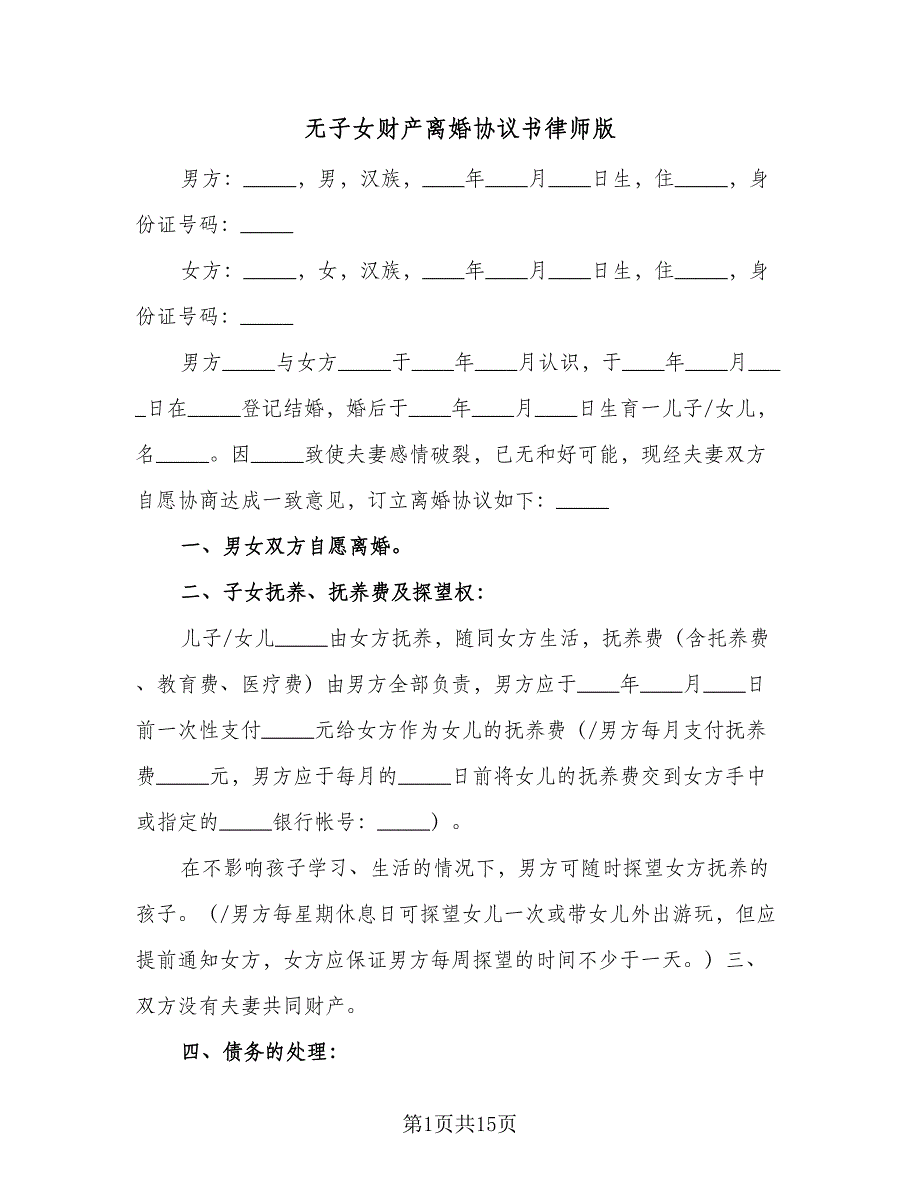 无子女财产离婚协议书律师版
男方：_____，男，汉族，____年____月____日生，住_____，身
份证号码：_____
女方：_____，女，汉族，____年____月____日生，住_____，身
份证号码：_____
男方_____与女方_____于____年____月认识，于____年____月___
_日在_____登记结婚，婚后于____年____月____日生育一儿子/女儿，
名_____。因_____致使夫妻感情破裂，已无和好可能，现经夫妻双方
自愿协商达成一致意见，订立离婚协议如下：_____
一、男女双方自愿离婚。
二、子女抚养、抚养费及探望权：
儿子/女儿_____由女方抚养，随同女方生活，抚养费（含托养费
、教育费、医疗费）由男方全部负责，男方应于____年____月____日
前一次性支付_____元给女方作为女儿的抚养费（/男方每月支付抚养
费_____元，男方应于每月的_____日前将女儿的抚养费交到女方手中
或指定的_____银行帐号：_____）。
在不影响孩子学习、生活的情况下，男方可随时探望女方抚养的
孩子。（/男方每星期休息日可探望女儿一次或带女儿外出游玩，但应
提前通知女方，女方应保证男方每周探望的时间不少于一天。）三、
双方没有夫妻共同财产。
四、债务的处理：
第1页共15页